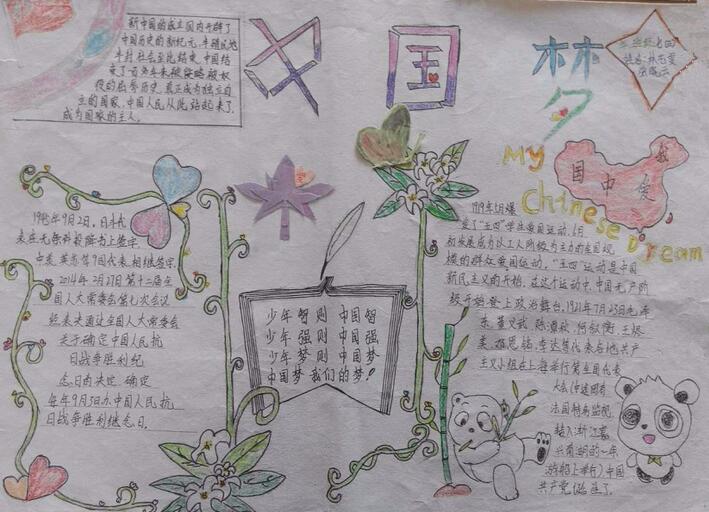 新中国的成立国内开辟了
中国历史的新纪元,半殖民地
半封社会至此结束,中国结
束了
的屈辱历史,真正成为独立自
主的国家,中国人民从此站起来了,
成为国家的主人。
中国梦
My
Chinese Dream
我爱中国
1945年9月2日,日本代
表在无条件投降书上签字
中美英苏等9国代表相继签字
2014年2月27日第十二届全
国人大常委会第七次会议
经表决通过全国人大常委会
关于确定中国人民抗
日战争胜利纪
念日的决定,确定
每年9月3日为中国人民抗
日战争胜利纪念日
少年智则中国智
少年强则中国强
少年梦则中国梦
中国梦我们的梦!
1919年5月爆
发了"五四"学生爱国运动,6月
初发展成为以工人阶级为主力的全国规
模的群众爱国运动。"五四"运动是中国
新民主义的开始,在这个运动中,中国无产阶
级开始登上政治舞台,1921年7月23日毛泽
东,董又武,陈潭秋,何叔衡,王烬
美,邓恩铭,李达等代表各地共产
主义小组在上海举行第全国代表
大会(中途因有
法国特务监视
转入浙江嘉
兴南湖的一
游船上举行)中国
共产党诞生了